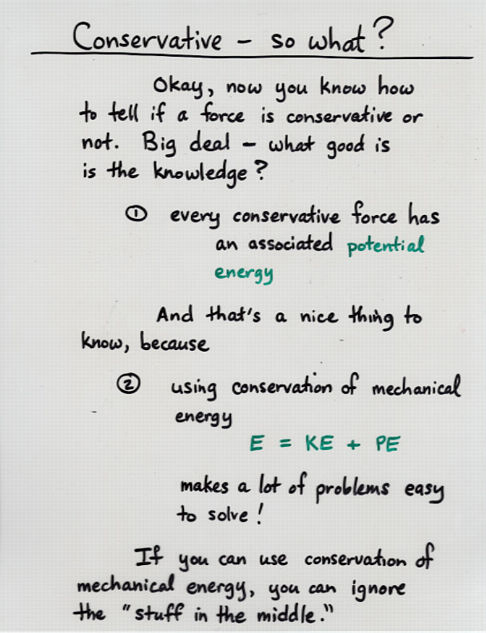 Conservative - so what?
Okay, now you know how
to tell if a force is conservative or
not. Big deal - what good is
is the knowledge?
① every conservative force has
an associated potential
energy
And that's a nice thing to
know, because
② using conservation of mechanical
energy
E = KE + PE
makes a lot of problems easy
to solve!
If you can use conservation of
mechanical energy, you can ignore
the "stuff in the middle."